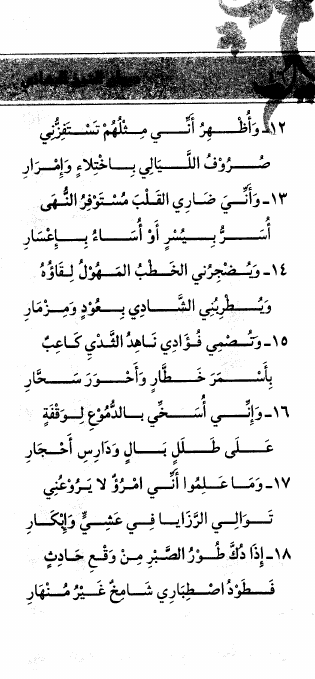 ١٢ـ وَأُظْهِرُ أَنِّي مِثْلُهُمْ تَسْتَفِزُّنِي
صُرُوْفُ اللَّيَالِي بِاخْتِلَاءٍ وَإِمْرَارِ
١٣ـ وَأَنِّيَ ضَارِي القَلْبَ مُسْتَوْفِزُ النُّهَى
أُسَرُّ بِيُسْرٍ أَوْ أُسَاءُ بِإِعْسَارِ
١٤ـ وَيُضْجِرُنِي الخَطْبُ المَهُوْلُ لِقَاؤُهُ
وَيُطْرِبُنِي الشَّادِي بِعُوْدٍ وَمِزْمَارِ
١٥ـ وَتُصْمِي فُؤَادِي نَاهِدُ الثَّدْيِ كَاعِبٌ
بِأَسْمَرَ خَطَّارٍ وَأَحْوَرَ سَحَّارِ
١٦ـ وَإِنِّي أُسَخِّي بِالدُّمُوْعِ لِوَقْفَةٍ
عَلَى طَلَلٍ بَالٍ وَدَارِسِ أَحْجَارِ
١٧ـ وَمَا عَلِمُوا أَنِّي امْرُؤٌ لَا يَرُوْعُنِي
تَوَالِي الرَّزَايَا فِي عَشِيٍّ وَإِبْكَارِ
١٨ـ إِذَا دُكَّ طُوْرُ الصَّبْرِ مِنْ وَقْعِ حَادِثٍ
فَطَوْدُ اصْطِبَارِي شَامِخٌ غَيْرُ مُنْهَارِ